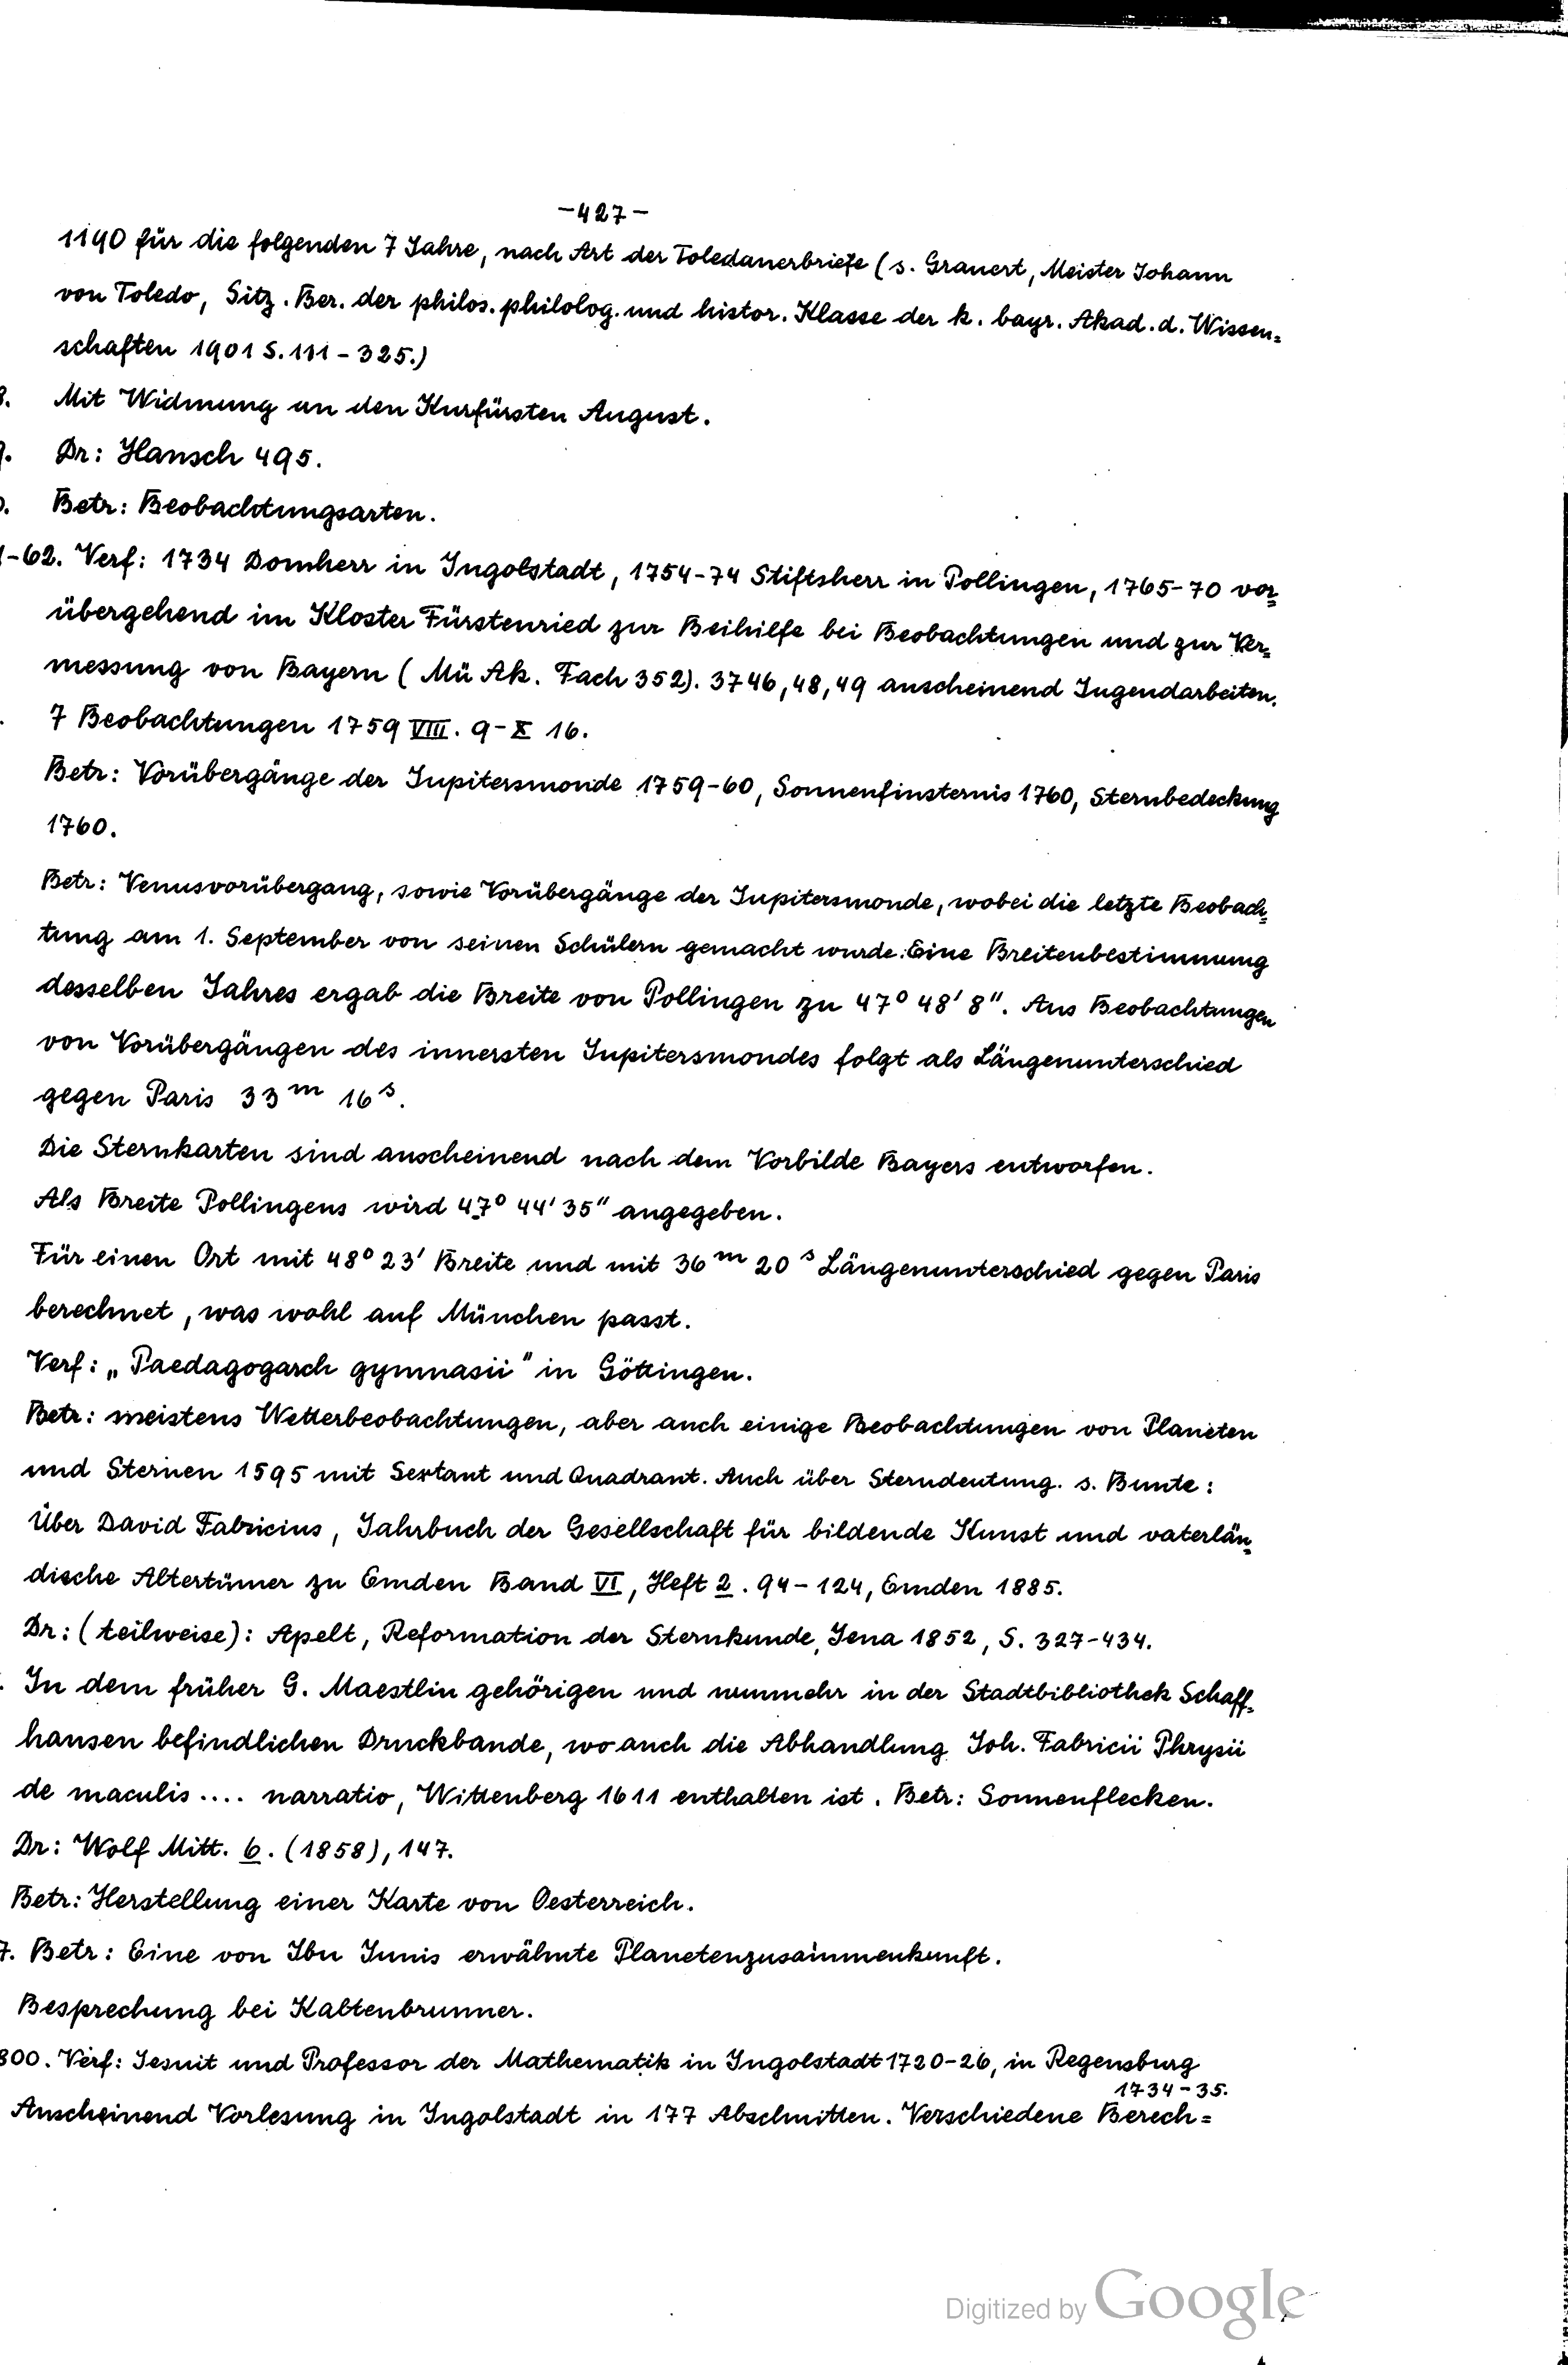 -427-
1190 für die folgenden 7 Jahre, nach Art der Toledanerbriefe (s. Grauert, Meister Johann
von Toledo, Sitz. Ber. der philos. philolog. und histor. Klasse der k. bayr. Akad. d. Wissen=
schaften 1901 S. 111-325.)
Mit Widmung an den Kurfürsten August.
Dr: Hansch 495.
Betr: Beobachtungsarten.
-62. Verf: 1734 Domherr in Ingolstadt, 1754-74 Stiftsherr in Pollingen, 1765-70 vor=
übergehend im Kloster Fürstenried zur Beihilfe bei Beobachtungen und zur Ver=
messung von Bayern (Mü Ak. Fach 352). 3746,48,49 anscheinend Jugendarbeiten.
7 Beobachtungen 1759 VIII. 9-X 16.
Betr: Vorübergänge der Jupitersmonde 1759-60, Sonnenfinsternis 1760, Sternbedeckung
1760.
Betr: Venusvorübergang, sowie Vorübergänge der Jupitersmonde, wobei die letzte Beobach=
tung am 1. September von seinen Schülern gemacht wurde. Eine Breitenbestimmung
desselben Jahres ergab die Breite von Pollingen zu 47° 48' 8". Aus Beobachtungen
von Vorübergängen des innersten Jupitersmondes folgt als Längenunterschied
gegen Paris 33 m 16 s.
Die Sternkarten sind anscheinend nach dem Vorbilde Bayers entworfen.
Als Breite Pollingens wird 47° 44' 35" angegeben.
Für einen Ort mit 48° 23' Breite und mit 36 m 20 s Längenunterschied gegen Paris
berechnet, was wohl auf München passt.
Verf: „Paedagogarch gymnasii" in Göttingen.
Betr: meistens Wetterbeobachtungen, aber auch einige Beobachtungen von Planeten
und Sternen 1595 mit Sextant und Quadrant. Auch über Sterndeutung. s. Bunte:
Über David Fabricius, Jahrbuch der Gesellschaft für bildende Kunst und vaterlän=
dische Altertümer zu Emden Band VI, Heft 2. 94-124, Emden 1885.
Dr: (teilweise): Apelt, Reformation der Sternkunde, Jena 1852, S. 327-434.
In dem früher G. Maestlin gehörigen und nunmehr in der Stadtbibliothek Schaff=
hausen befindlichen Druckbande, wo auch die Abhandlung Joh. Fabricii Phrysii
de maculis .... narratio, Wittenberg 1611 enthalten ist. Betr: Sonnenflecken.
Dr: Wolf Mitt. 6. (1858), 147.
Betr: Herstellung einer Karte von Oesterreich.
7. Betr: Eine von Ibn Junis erwähnte Planetenzusammenkunft.
Besprechung bei Kaltenbrunner.
800. Verf: Jesuit und Professor der Mathematik in Ingolstadt 1720-26, in Regensburg
1734-35.
Anscheinend Vorlesung in Ingolstadt in 177 Abschnitten. Verschiedene Berech=
Digitized by Google